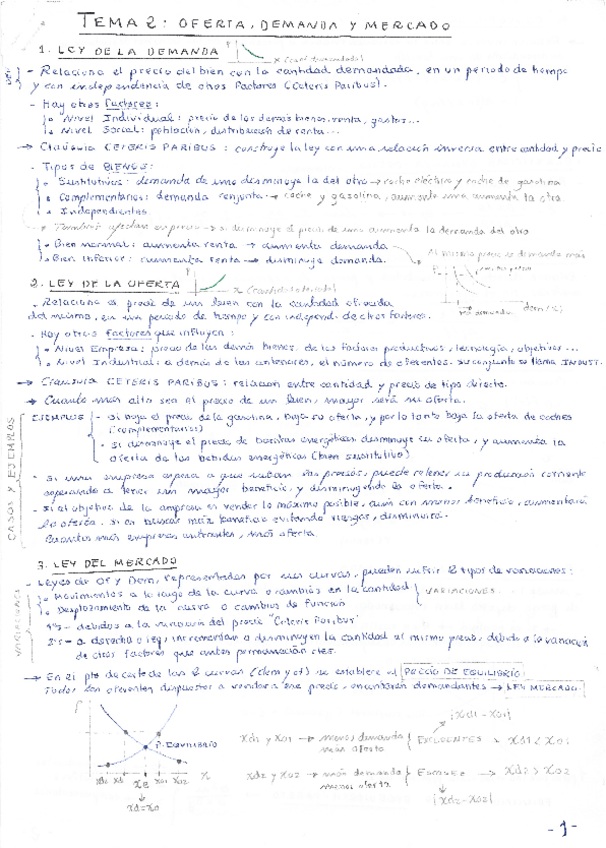 TEMA 2: OFERTA, DEMANDA Y MERCADO
1. LEY DE LA DEMANDA
x (cant. demandada)
- Relaciona el precio del bien con la cantidad demandada, en un periodo de tiempo
y con independencia de otros Factores (Ceteris Paribus).
- Hay otros Factores:
Nivel Individual: precio de los demás bienes, renta, gustos...
Nivel Social: población, distribución de renta...
→ Cláusula CETERIS PARIBUS: construye la ley con una relación inversa entre cantidad y precio
- Tipos de BIENES:
Sustitutivos: demanda de uno disminuye la del otro → coche eléctrico y coche de gasolina
Complementarios: demanda conjunta → coche y gasolina, aumenta una aumenta la otra
Independientes.
→ si disminuye el precio de uno aumenta la demanda del otro
Bien normal: aumenta renta → aumenta demanda
Bien inferior: aumenta renta → disminuye demanda.
Al mismo precio se demanda más
2. LEY DE LA OFERTA
x (cantidad ofertada)
- Relaciona el precio de un bien con la cantidad ofrecida
del mismo, en un periodo de tiempo y con independ. de otros factores.
- Hay otros factores que influyen:
Nivel Empresa: precio de los demás bienes, de los factores productivos, tecnología, objetivos...
Nivel Industrial: a demás de las anteriores, el número de oferentes. Su conjunto se llama INDUST.
→ Clausula CETERIS PARIBUS: relación entre cantidad y precio de tipo directa.
→ Cuanto más alto sea el precio de un bien, mayor será su oferta.
CASOS Y EJEMPLOS
EJEMPLOS
- Si baja el precio de la gasolina, baja su oferta, y por lo tanto baja la oferta de coches
(complementarios)
- Si disminuye el precio de bebidas energéticas disminuye su oferta, y aumenta la
oferta de las bebidas energéticas (bien sustitutivo)
- Si una empresa espera a que suban los precios, puede retener su producción corriente
esperando a tener un mayor beneficio, y disminuyendo la oferta.
- Si el objetivo de la empresa es vender lo máximo posible, aún con menos beneficio, aumentará
la oferta. Si es buscar más beneficio evitando riesgos, disminuirá.
Cuantas más empresas entrantes, más oferta.
3. LEY DEL MERCADO
- Leyes de Of y Dem, representadas por sus curvas, pueden sufrir 2 tipos de variaciones:
Movimientos a lo largo de la curva o cambios en la cantidad
VARIACIONES
Desplazamiento de la curva o cambios de función
1ºs - debidos a la variación del precio "Ceteris Paribus"
2ºs - a derecha o izq, incrementan o disminuyen la cantidad al mismo precio, debido a la variación
de otros factores que antes permanecían ctes.
→ En el pto de corte de las 2 curvas (dem y of) se establece el PRECIO DE EQUILIBRIO.
Todos los oferentes dispuestos a vender a ese precio, encontrarán demandantes → LEY MERCADO.
P. EQUILIBRIO
xe
xd=xo
Xd1 y Xo1 → menos demanda
más oferta
EXCEDENTES → Xd1 < Xo1
|Xd1 - Xo1|
Xd2 y Xo2 → más demanda
menos oferta
ESCASEZ → Xd2 > Xo2
|Xd2 - Xo2|
-1-